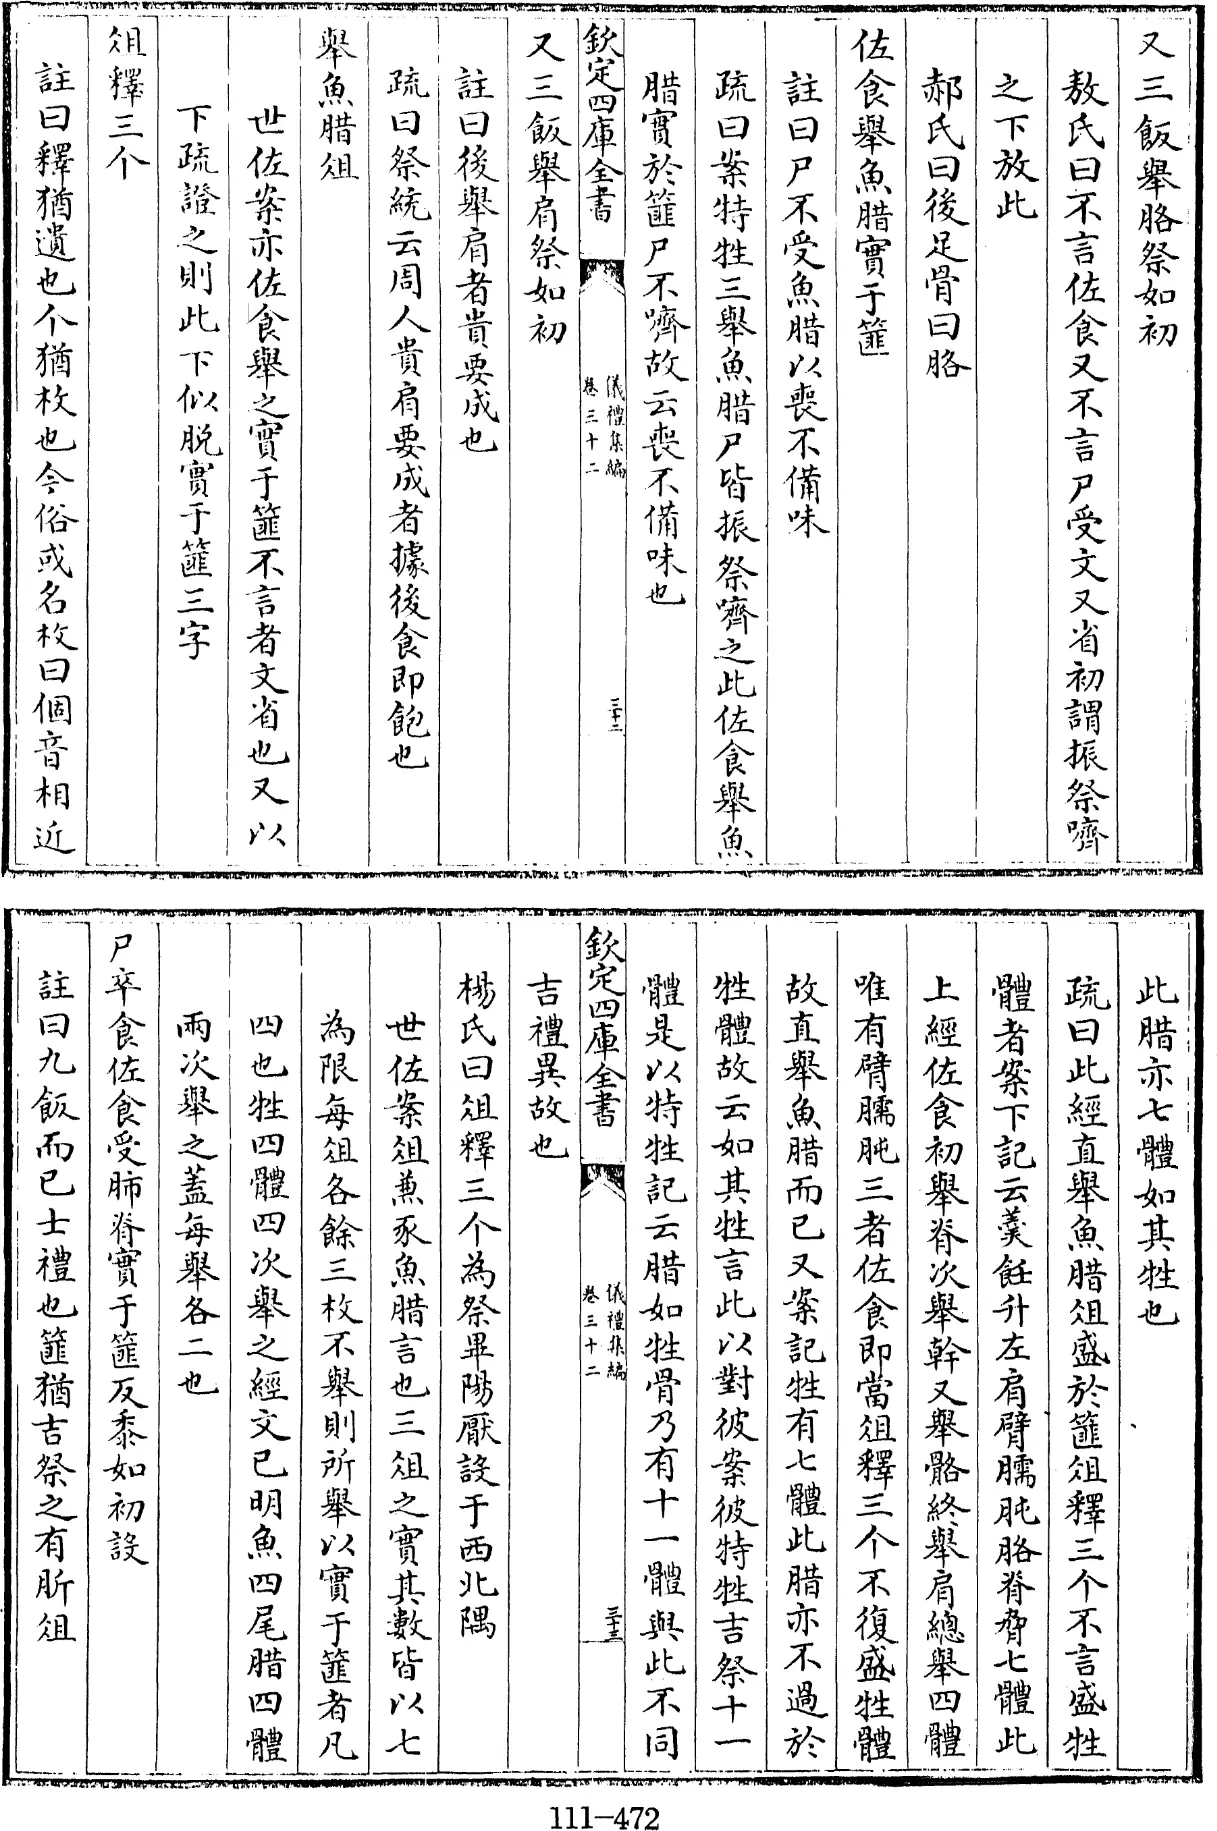 又三飯舉胳祭如初
敖氏曰不言佐食又不言尸受文又省初謂振祭嚌
之下放此
郝氏曰後足骨曰胳
佐食舉魚腊實于篚
註曰尸不受魚腊以喪不備味
疏曰案特牲三舉魚腊尸皆振祭嚌之此佐食舉魚
腊實於篚尸不嚌故云喪不備味也
欽定四庫全書
儀禮集編
卷三十二
三十二
又三飯舉肩祭如初
註曰後舉肩者貴要成也
疏曰祭統云周人貴肩要成者據後食即飽也
舉魚腊俎
世佐案亦佐食舉之實于篚不言者文省也又以
下疏證之則此下似脱實于篚三字
俎釋三个
註曰釋猶遺也个猶枚也今俗或名枚曰個音相近
此腊亦七體如其牲也
疏曰此經直舉魚腊俎盛於篚俎釋三个不言盛牲
體者案下記云羹飪升左肩臂臑肫胳脊脅七體此
上經佐食初舉脊次舉幹又舉骼終舉肩總舉四體
唯有臂臑肫三者佐食即當俎釋三个不復盛牲體
故直舉魚腊而已又案記牲有七體此腊亦不過於
牲體故云如其牲言此以對彼案彼特牲吉祭十一
體是以特牲記云腊如牲骨乃有十一體與此不同
欽定四庫全書
儀禮集編
卷三十二
三十三
吉禮異故也
楊氏曰俎釋三个為祭畢陽厭設于西北隅
世佐案俎兼豕魚腊言也三俎之實其數皆以七
為限每俎各餘三枚不舉則所舉以實于篚者凡
四也牲四體四次舉之經文已明魚四尾腊四體
兩次舉之蓋每舉各二也
尸卒食佐食受肺脊實于篚反黍如初設
註曰九飯而已士禮也篚猶吉祭之有肵俎
111-472